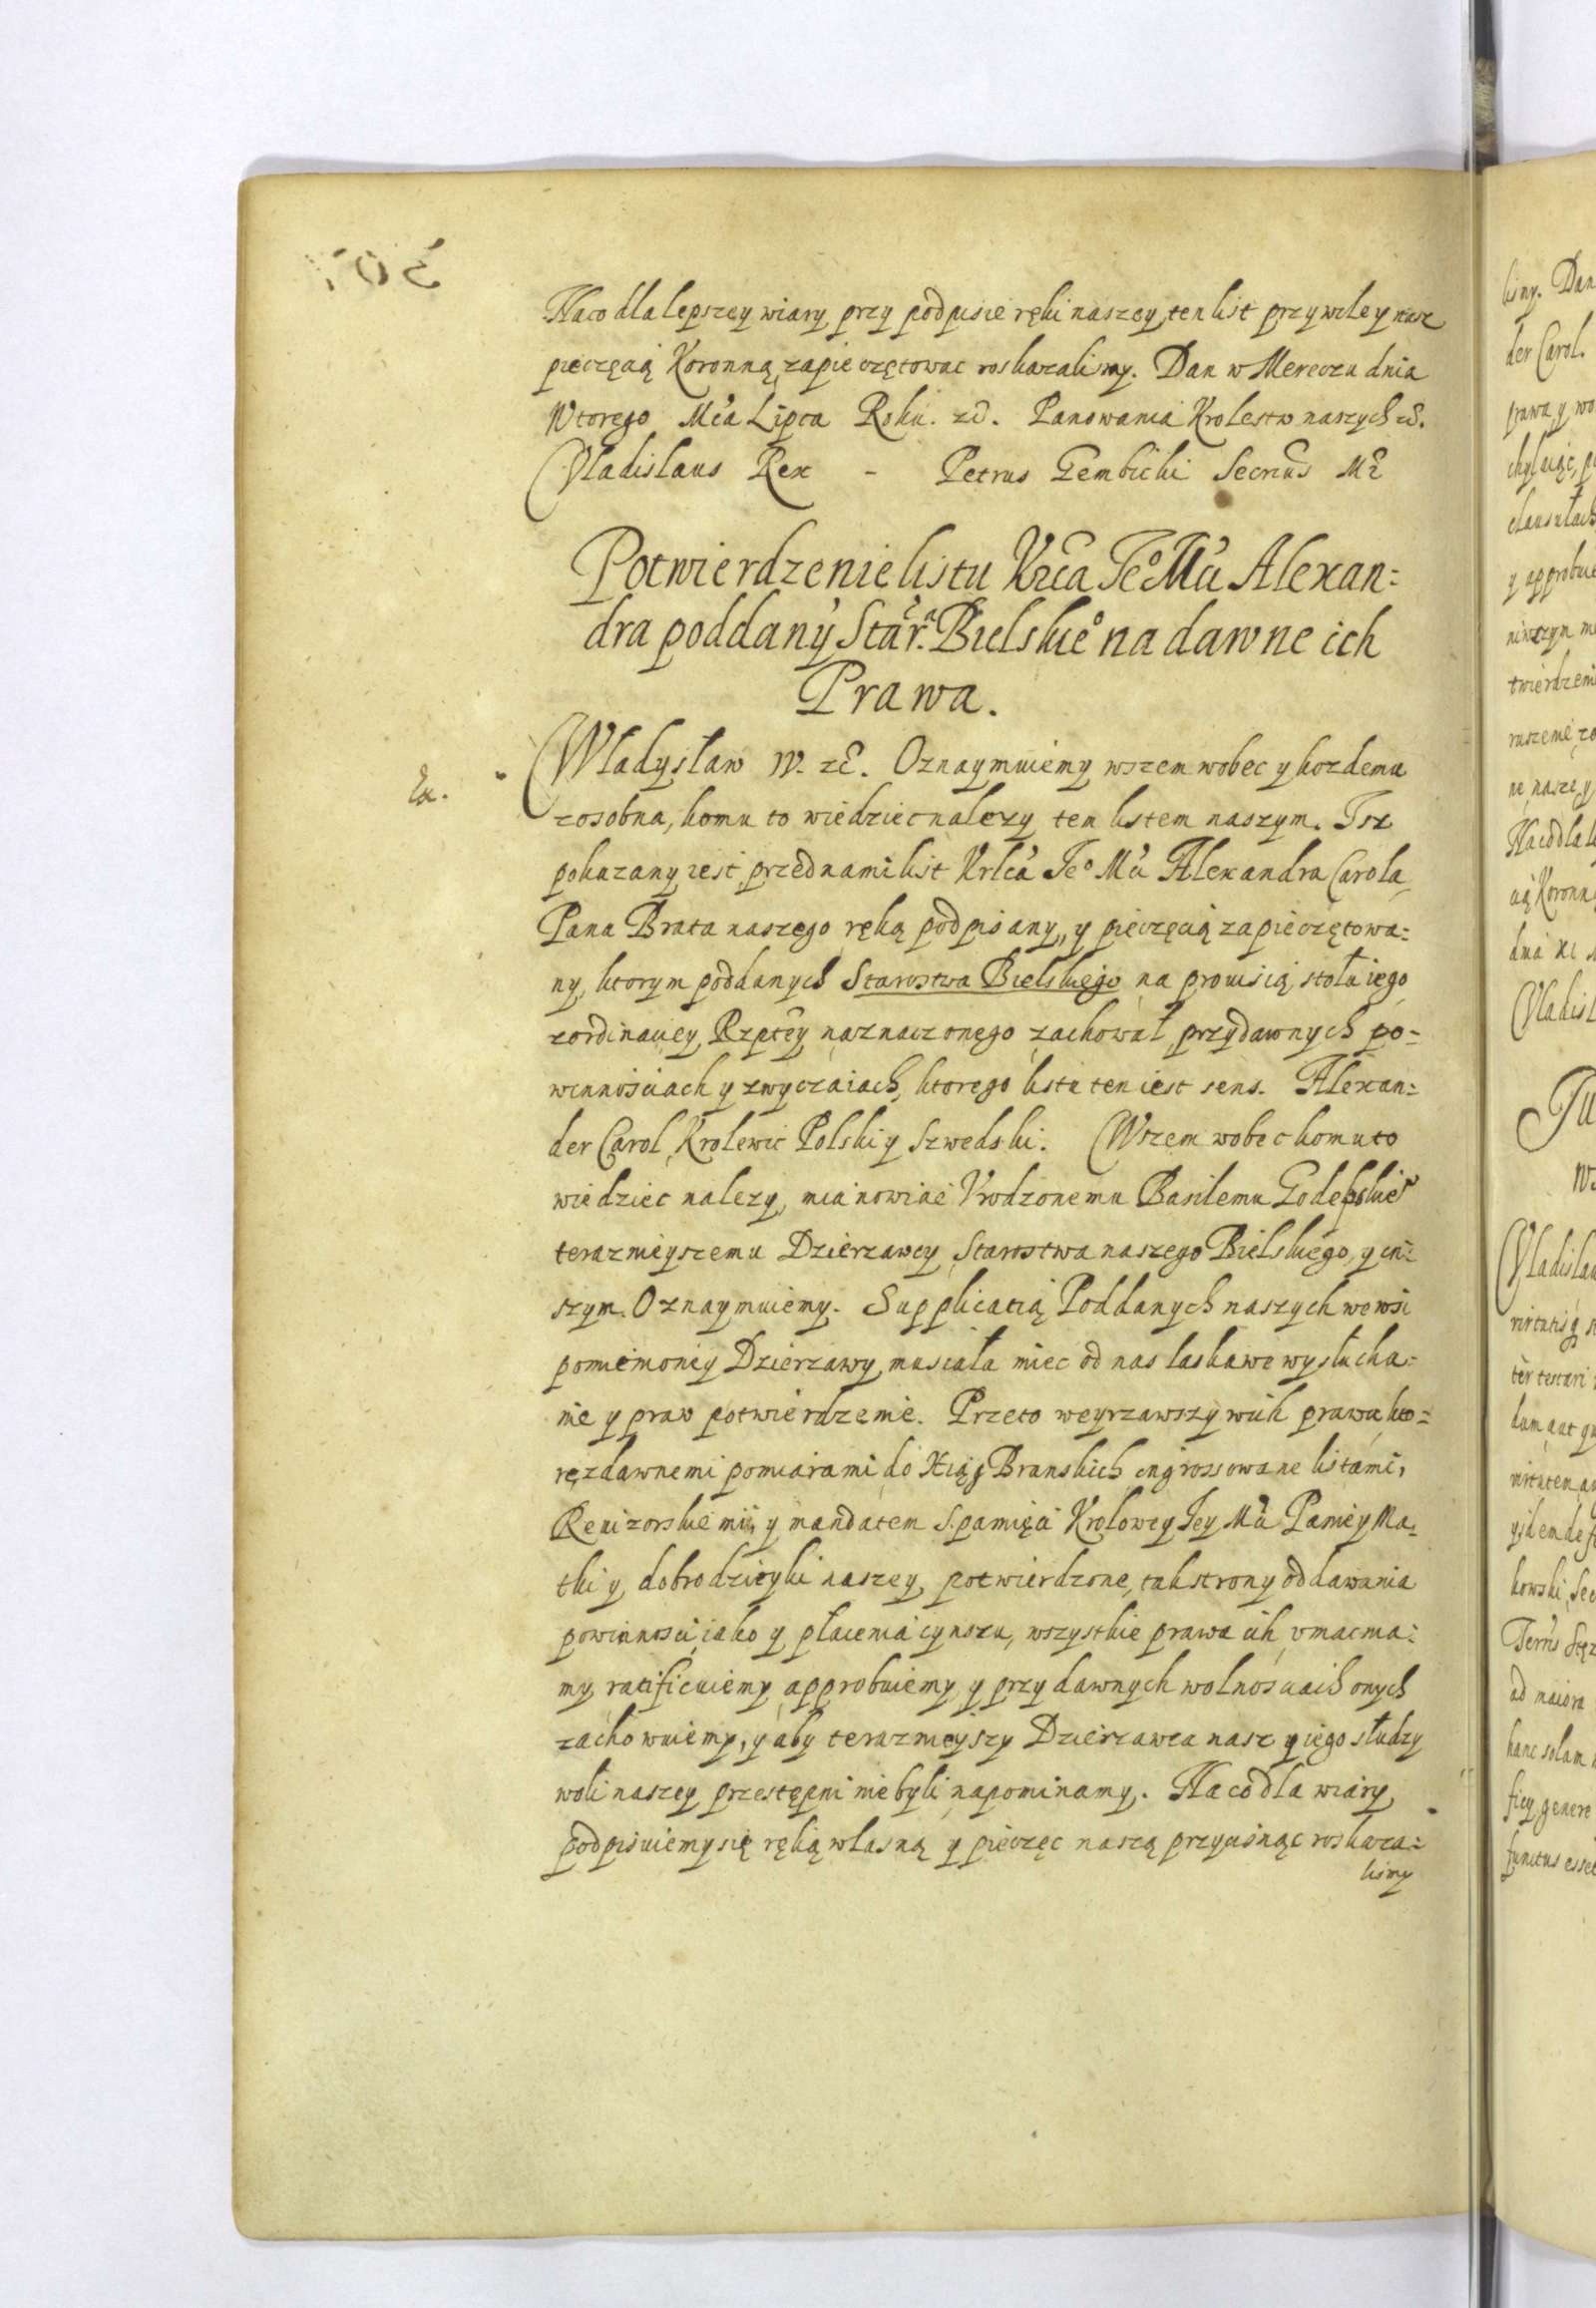 Na co dla lepszey wiary przy podpisie ręki naszey, ten list przywiley nasz
pieczęcią Koronną zapieczętowac roskazalismy. Dan w Mereczu dnia
Wtorego Mca Lipca Roku. zc. Panowania Krolestw naszych zc.
Vladislaus Rex - Petrus Gembicki Secrius
Potwierdzenie listu Krca Jeo Mci Alexan=
dra poddany Star. Bielskieo na dawne ich
Prawa.
Władysław IV. zc. Oznaymuiemy wszem wobec y kozdemu
zosobna, komu to wiedziec nalezy tem listem naszym. Isz
pokazany iest przed nami list Krlca Jeo Mci Alexandra Carola
Pana Brata naszego ręką podpisany, y pieczęcią zapieczętowa=
ny, ktorym poddanych Starostwa Bielskiego na prouisią stołu iego
zordinaciey Rzptey naznaczonego zachował przydawnych po=
winnosciach y zwyczaiach, ktorego listu ten iest sens. Alexan=
der Carol Krolewic Polski y Szwedski. Wszem wobec komu to
wiedziec nalezy, mianowicie Vrodzonemu Basilemu Godebskieo
terazmieyszemu Dzierzawcy Starostwa naszego Bielskiego, y in=
szym. Oznaymuiemy. Supplicatią Poddanych naszych we wsi
pomiemoniey Dzierzawy, musiała miec od nas laskawe wysłucha=
nie y praw potwierdzenie. Przeto weyrzawszy w ich prawa kto=
re z dawnemi pomiarami do Xiąg Branskich ingrossowane listami,
Reuizorskiemi, y mandatem S. pamięci Krolowey Jey Mci Paniey Ma=
tki y dobrodzieyki naszey, potwierdzone, tak strony oddawania
powinnosci, iako y płacenia cynszu, wszystkie prawa ich vmacnia=
my, ratificuiemy approbuiemy y przy dawnych wolnosciach onych
zachowuiemy, y aby terazmieyszy Dzierzawca nasz y iego słudzy
woli naszey przestępni nie byli napominamy. Na co dla wiary
podpisuiemy się ręką własną y pieczęc naszą przycisnąc roskaza=
lismy